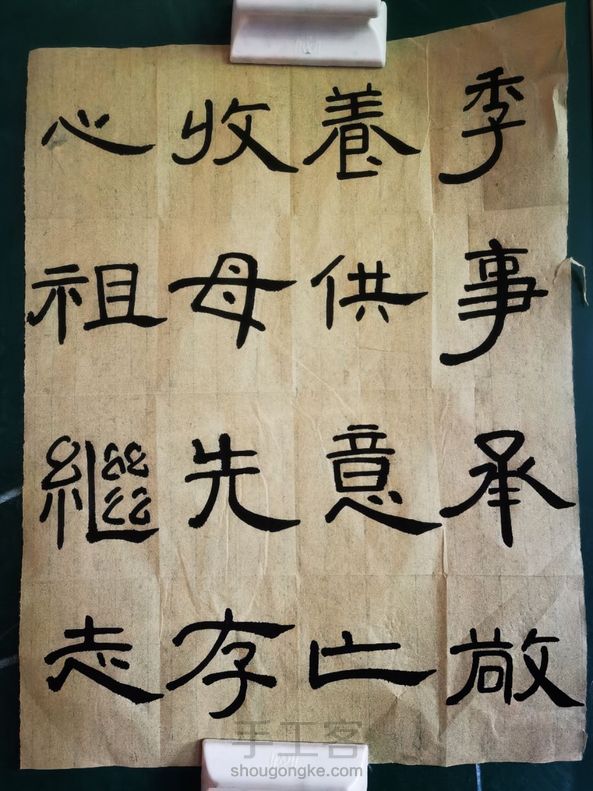 心收養季
祖母供事
繼先意承
志存亡敬
手工客
shougongke.com